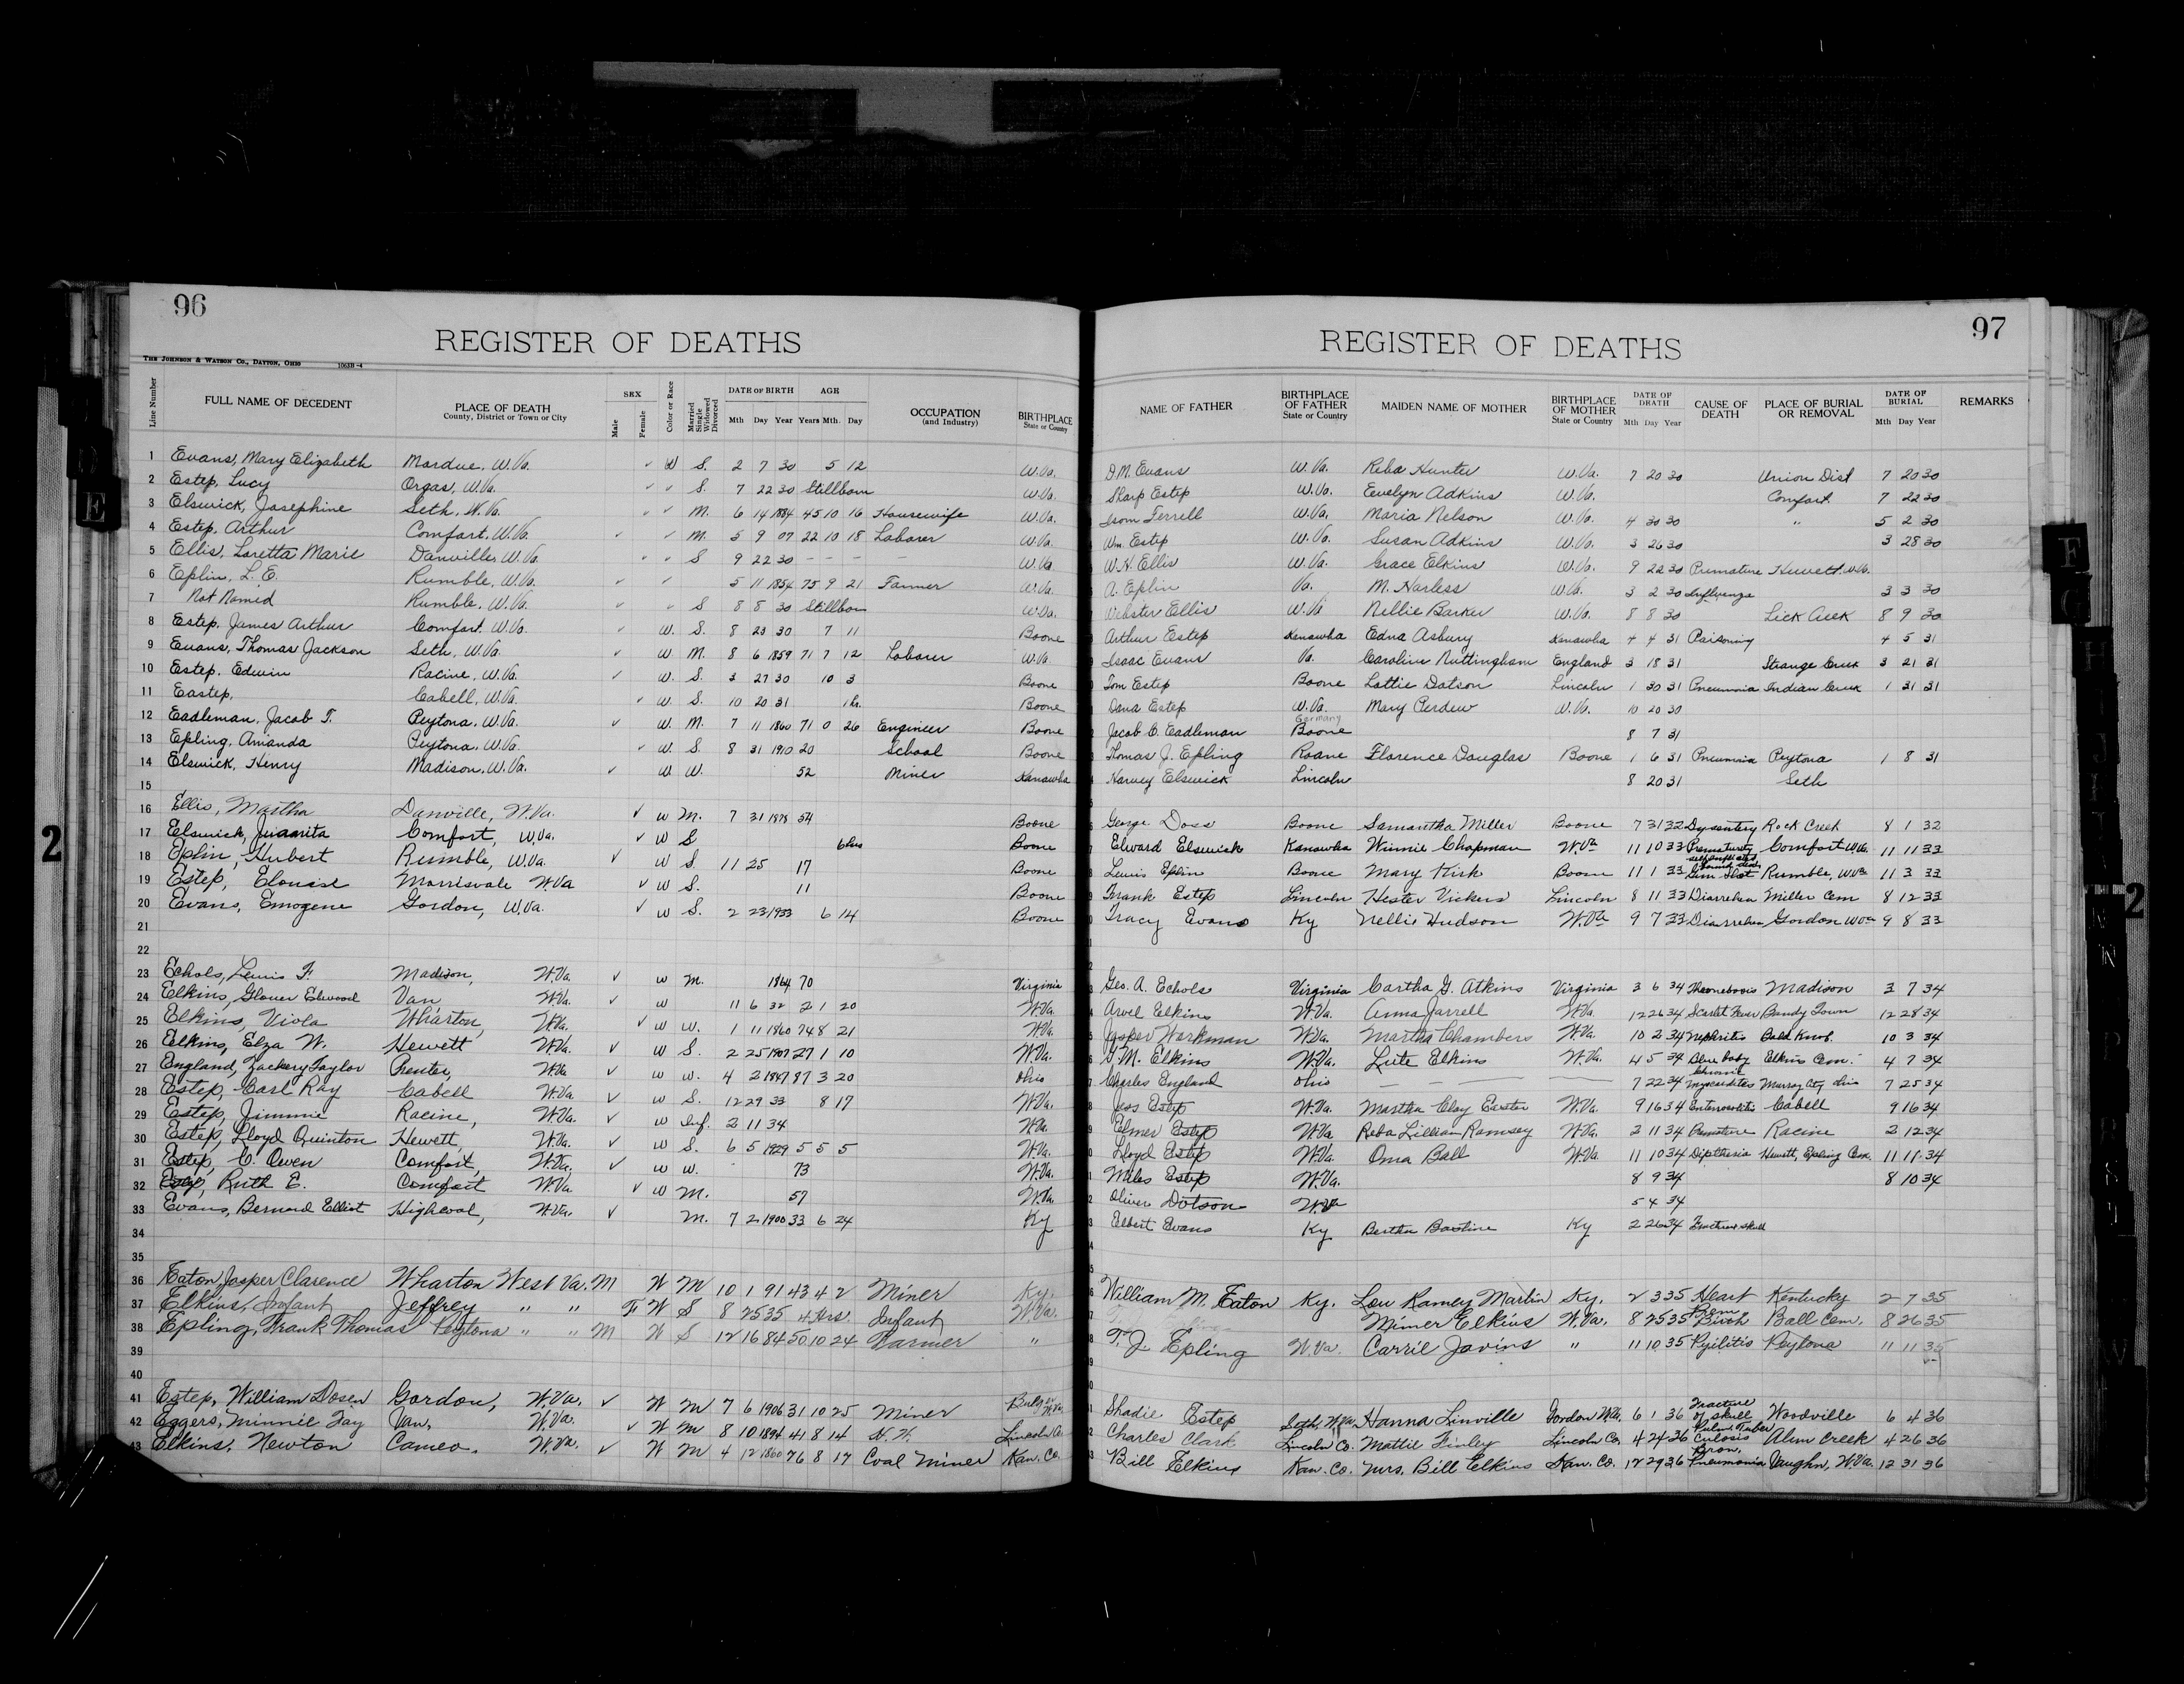 96
REGISTER OF DEATHS
THE JOHNSON & WATSON CO., DAYTON, OHIO 1063B-4
Line Number FULL NAME OF DECEDENT PLACE OF DEATH County, District or Town or City SEX Male Female Color or Race Married Single Widowed Divorced DATE OF BIRTH Mth Day Year AGE Years Mth. Day OCCUPATION (and Industry) BIRTHPLACE State or Country
1 Evans, Mary Elizabeth Mordue, W.Va. ✓ W S. 2 7 30 5 12 W.Va.
2 Estep, Lucy Orgas, W.Va. ✓ ✓ S. 7 22 30 Stillborn W.Va.
3 Elswick, Josephine Seth, W.Va. ✓ ✓ M. 6 14 1884 45 10 16 Housewife W.Va.
4 Estep, Arthur Comfort, W.Va. ✓ ✓ M. 5 9 07 22 10 18 Laborer W.Va.
5 Ellis, Loretta Marie Danville, W.Va. ✓ ✓ S 9 22 30 - - - - W.Va.
6 Eplin, L. E. Rumble, W.Va. ✓ ✓ 5 11 1854 75 9 21 Farmer W.Va.
7 Not Named Rumble, W.Va. ✓ ✓ S 8 8 30 Stillborn W.Va.
8 Estep, James Arthur Comfort, W.Va. ✓ W. S. 8 23 30 7 11 Boone
9 Evans, Thomas Jackson Seth, W.Va. ✓ W. M. 8 6 1859 71 7 12 Laborer W.Va.
10 Estep, Edwin Racine, W.Va. ✓ W. S. 3 27 30 10 3 Boone
11 Eastep, Cabell, W.Va. ✓ W. S. 10 20 31 1 hr. Boone
12 Eadleman, Jacob T. Peytona, W.Va. ✓ W. M. 7 11 1860 71 0 26 Engineer Boone
13 Epling, Amanda Peytona, W.Va. ✓ W. S. 8 31 1910 20 School Boone
14 Elswick, Henry Madison, W.Va. ✓ W W. 52 Miner Kanawha
15
16 Ellis, Martha Danville, W.Va. ✓ W M. 7 31 1878 54 Boone
17 Elswick, Juanita Comfort, W.Va. ✓ W S 6 hrs Boone
18 Eplin, Hubert Rumble, W.Va. ✓ W S 11 25 17 Boone
19 Estep, Elouise Morrisvale W.Va ✓ W S. 11 Boone
20 Evans, Emogene Gordon, W.Va. ✓ W S. 2 23 1933 6 14 Boone
21
22
23 Echols, Lewis F. Madison, W.Va. ✓ W M. 1864 70 Virginia
24 Elkins, Glover Elwood Van, W.Va. ✓ W 11 6 32 2 1 20 W.Va.
25 Elkins, Viola Wharton, W.Va. ✓ W W. 1 11 1860 74 8 21 W.Va.
26 Elkins, Elza W. Hewett W.Va. ✓ W S. 2 25 1907 27 1 10 W.Va.
27 England, Zackery Taylor Prenter, W.Va ✓ W W. 4 2 1847 87 3 20 Ohio
28 Estep, Carl Ray Cabell W.Va. ✓ W S. 12 29 33 8 17 W.Va.
29 Estep, Jimmie Racine, W.Va. ✓ W Inf. 2 11 34 W.Va.
30 Estep, Lloyd Quinton Hewett, W.Va. ✓ W S. 6 5 1929 5 5 5 W.Va.
31 Estep, C. Owen Comfort, W.Va. ✓ W W. 73 W.Va.
32 Estep, Ruth E. Comfort W.Va ✓ W M. 57 W.Va.
33 Evans, Bernard Elliot Highcoal, W.Va. ✓ M. 7 2 1900 33 6 24 Ky
34
35
36 Eaton, Jasper Clarence Wharton West Va. M W M 10 1 91 43 4 2 Miner Ky.
37 Elkins, Infant Jeffrey " " F W S 8 25 35 4 Hrs. Infant W.Va.
38 Epling, Frank Thomas Peytona " " M W S 12 16 84 50 10 24 Farmer "
39
40
41 Estep, William Dosen Gordon, W.Va. ✓ W M 7 6 1906 31 10 25 Miner
42 Eggers, Minnie Fay Van, W.Va. ✓ W M 8 10 1894 41 8 14 H. W. Lincoln Co.
43 Elkins, Newton Cameo. W.Va. ✓ W M 4 12 1860 76 8 17 Coal Miner Kan. Co.
97
REGISTER OF DEATHS
NAME OF FATHER BIRTHPLACE OF FATHER State or Country MAIDEN NAME OF MOTHER BIRTHPLACE OF MOTHER State or Country DATE OF DEATH Mth Day Year CAUSE OF DEATH PLACE OF BURIAL OR REMOVAL DATE OF BURIAL Mth Day Year REMARKS
D.M. Evans W.Va. Reba Hunter W.Va. 7 20 30 Union Dist 7 20 30
Sharp Estep W.Va. Evelyn Adkins W.Va. Comfort 7 22 30
Isom Ferrell W.Va. Maria Nelson W.Va. 4 30 30 " 5 2 30
Wm. Estep W.Va. Susan Adkins W.Va. 3 26 30 3 28 30
W.H. Ellis W.Va. Grace Elkins W.Va. 9 22 30 Premature Hewett, W.Va.
A. Eplin Va. M. Harless W.Va. 3 2 30 Influenza 3 3 30
Webster Ellis W.Va Nellie Barker W.Va. 8 8 30 Lick Creek 8 9 30
Arthur Estep Kanawha Edna Asbury Kanawha 4 4 31 Poisoning 4 5 31
Isaac Evans Va. Caroline Nuttingham England 3 18 31 Strange Creek 3 21 31
Tom Estep Boone Lottie Dotson Lincoln 1 30 31 Pneumonia Indian Creek 1 31 31
Dana Estep W.Va. Mary Perdew W.Va. 10 20 30
Jacob C. Eadleman Germany Boone 8 7 31
Thomas J. Epling Roane Florence Douglas Boone 1 6 31 Pneumonia Peytona 1 8 31
Harvey Elswick Lincoln 8 20 31 Seth
George Doss Boone Samantha Miller Boone 7 31 32 Dysentery Rock Creek 8 1 32
Edward Elswick Kanawha Winnie Chapman W.Va 11 10 33 Prematurity Comfort W.Va. 11 11 33
Lewis Eplin Boone Mary Kirk Boone 11 1 33 Self inflicted Gun Shot Rumble, W.Va 11 3 33
Frank Estep Lincoln Hester Vickers Lincoln 8 11 33 Diarrehea Miller Cem 8 12 33
Tracy Evans Ky Nellie Hudson W.Va 9 7 33 Diarrehea Gordon W.Va 9 8 33
Geo. A. Echols Virginia Cartha G. Atkins Virginia 3 6 34 Madison 3 7 34
Arvel Elkins W.Va. Anna Jarrell W.Va. 12 26 34 Scarlet Fever Bandy Town 12 28 34
Jasper Workman W.Va. Martha Chambers W.Va. 10 2 34 Nephritis Bald Knob. 10 3 34
G.M. Elkins W.Va. Lute Elkins W.Va. 4 5 34 Blue baby Elkins Cem. 4 7 34
Charles England Ohio — — — 7 22 34 Chronic Myocarditis Murray City Ohio 7 25 34
Jess Estep W.Va. Martha Clay Easter W.Va. 9 16 34 Enterocolitis Cabell 9 16 34
Elmer Estep W.Va Reba Lillian Ramsey W.Va. 2 11 34 Premature Racine 2 12 34
Lloyd Estep W.Va. Oma Ball W.Va 11 10 34 Diptheria Hewett, Epling Cem. 11 11 34
Miles Estep W.Va. 8 9 34 8 10 34
Oliver Dotson W.Va 5 4 34
Elbert Evans Ky Bertha Bastine Ky 2 26 34 Fractured skull
William M. Eaton Ky. Lou Ramey Martin Ky. 2 3 35 Heart Kentucky 2 7 35
Miner Elkins W.Va. 8 25 35 Prem Birth Ball Cem. 8 26 35
T. J. Epling W.Va. Carril Javins " 11 10 35 Pyilitis Peytona 11 11 35
Shadie Estep Seth, W.Va. Hanna Linville Gordon W.Va. 6 1 36 Fracture of skull Woodville 6 4 36
Charles Clark Lincoln Co. Mattie Finley Lincoln Co. 4 24 36 Pulm. Tuberculosis Alum Creek 4 26 36
Bill Elkins Kan. Co. Mrs. Bill Elkins Kan. Co. 12 29 36 Bron. Pneumonia Vaughn, W.Va. 12 31 36
E
F
G
2
2